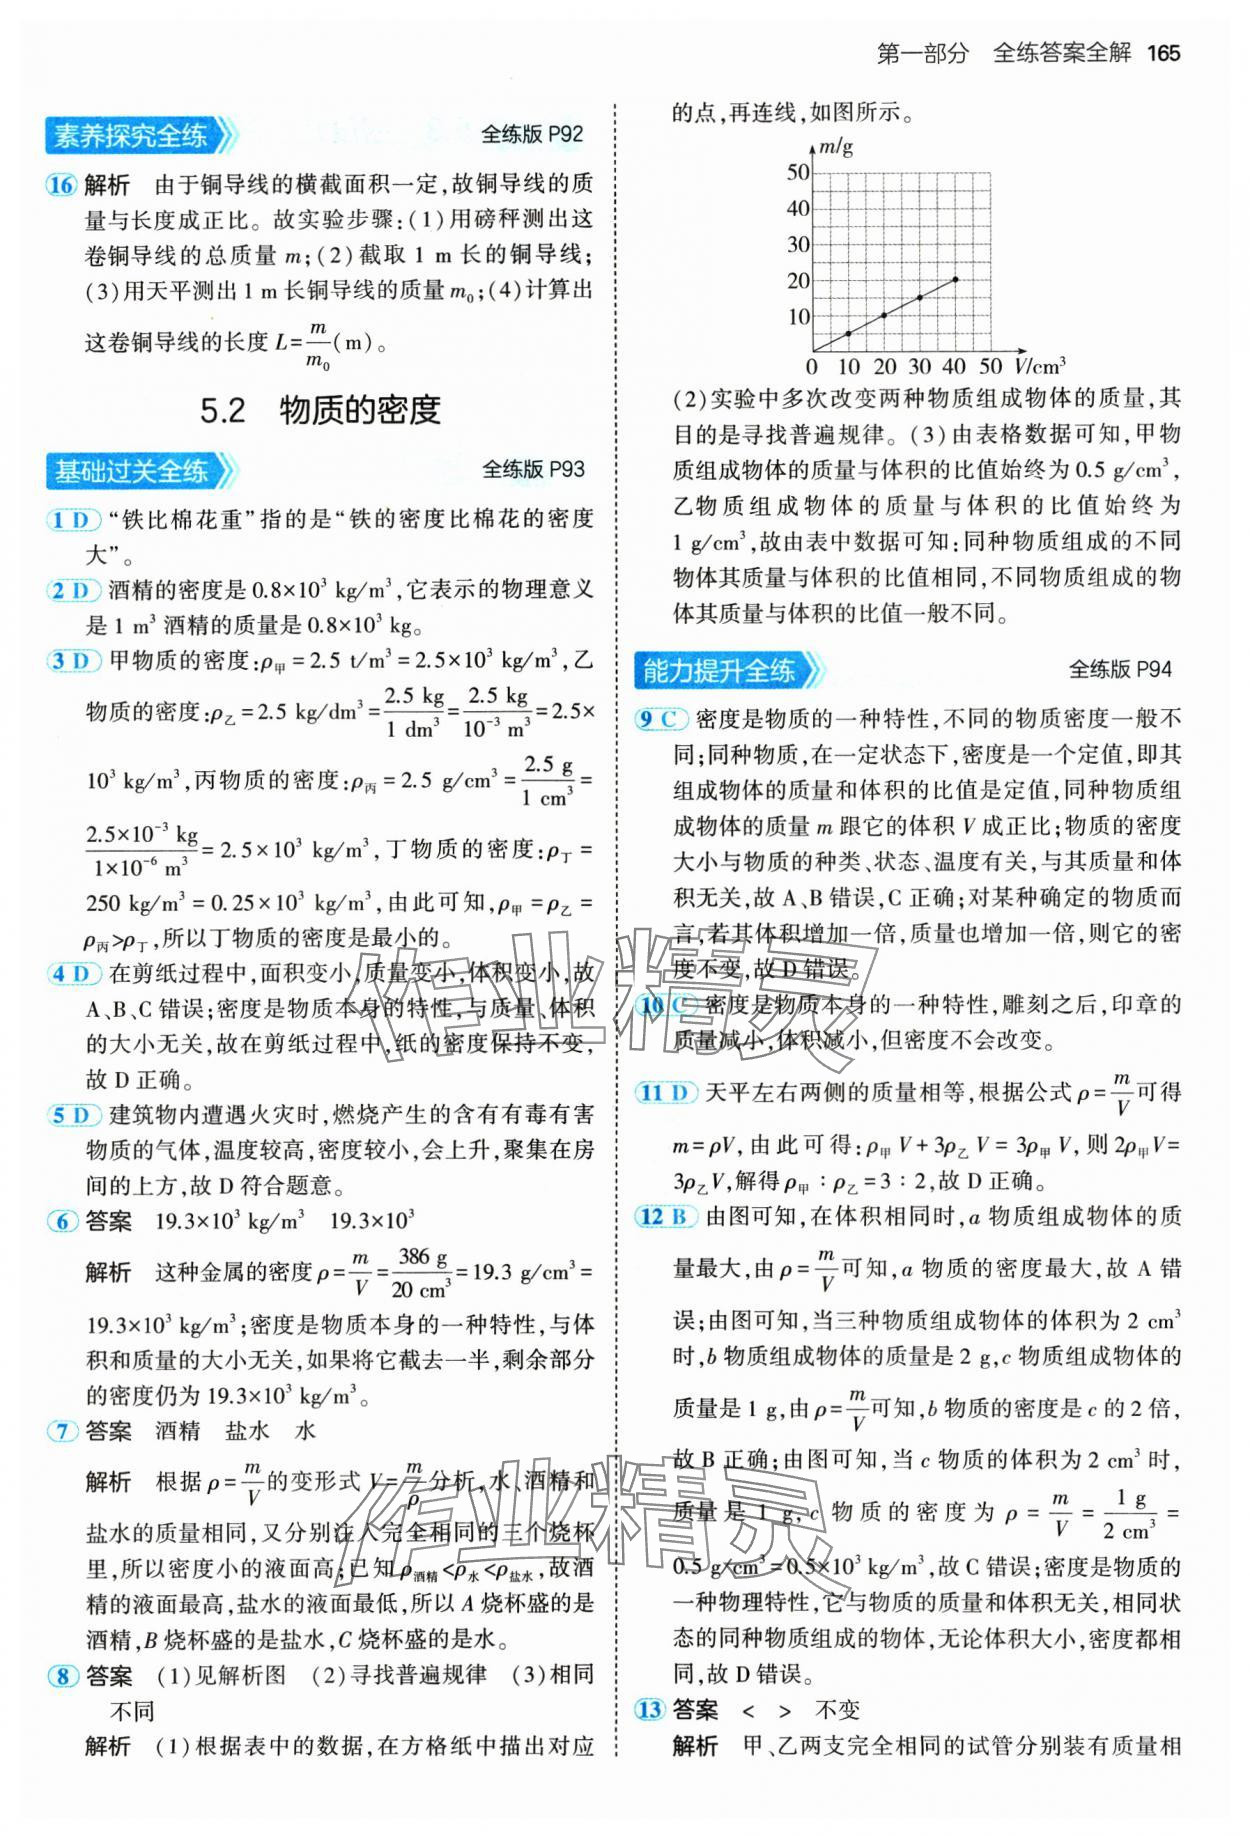 第一部分　全练答案全解　165
素养探究全练　全练版 P92
16 解析　由于铜导线的横截面积一定,故铜导线的质
量与长度成正比。故实验步骤:(1)用磅秤测出这
卷铜导线的总质量 m;(2)截取 1 m 长的铜导线;
(3)用天平测出 1 m 长铜导线的质量 m₀;(4)计算出
这卷铜导线的长度 L=m/m₀(m)。
5.2　物质的密度
基础过关全练　全练版 P93
1 D “铁比棉花重”指的是“铁的密度比棉花的密度
大”。
2 D 酒精的密度是 0.8×10³ kg/m³,它表示的物理意义
是 1 m³ 酒精的质量是 0.8×10³ kg。
3 D 甲物质的密度:ρ甲=2.5 t/m³=2.5×10³ kg/m³,乙
物质的密度:ρ乙=2.5 kg/dm³=2.5 kg/1 dm³=2.5 kg/10⁻³ m³=2.5×
10³ kg/m³,丙物质的密度:ρ丙=2.5 g/cm³=2.5 g/1 cm³=
2.5×10⁻³ kg/1×10⁻⁶ m³=2.5×10³ kg/m³,丁物质的密度:ρ丁=
250 kg/m³=0.25×10³ kg/m³,由此可知,ρ甲=ρ乙=
ρ丙>ρ丁,所以丁物质的密度是最小的。
4 D 在剪纸过程中,面积变小,质量变小,体积变小,故
A、B、C 错误;密度是物质本身的特性,与质量、体积
的大小无关,故在剪纸过程中,纸的密度保持不变,
故 D 正确。
5 D 建筑物内遭遇火灾时,燃烧产生的含有有毒有害
物质的气体,温度较高,密度较小,会上升,聚集在房
间的上方,故 D 符合题意。
6 答案　19.3×10³ kg/m³　19.3×10³
解析　这种金属的密度 ρ=m/V=386 g/20 cm³=19.3 g/cm³=
19.3×10³ kg/m³;密度是物质本身的一种特性,与体
积和质量的大小无关,如果将它截去一半,剩余部分
的密度仍为 19.3×10³ kg/m³。
7 答案　酒精　盐水　水
解析　根据 ρ=m/V的变形式 V=m/ρ分析,水、酒精和
盐水的质量相同,又分别注入完全相同的三个烧杯
里,所以密度小的液面高;已知 ρ酒精<ρ水<ρ盐水,故酒
精的液面最高,盐水的液面最低,所以 A 烧杯盛的是
酒精,B 烧杯盛的是盐水,C 烧杯盛的是水。
8 答案　(1)见解析图　(2)寻找普遍规律　(3)相同
不同
解析　(1)根据表中的数据,在方格纸中描出对应
的点,再连线,如图所示。
m/g
50
40
30
20
10
0 10 20 30 40 50 V/cm³
(2)实验中多次改变两种物质组成物体的质量,其
目的是寻找普遍规律。(3)由表格数据可知,甲物
质组成物体的质量与体积的比值始终为 0.5 g/cm³,
乙物质组成物体的质量与体积的比值始终为
1 g/cm³,故由表中数据可知:同种物质组成的不同
物体其质量与体积的比值相同,不同物质组成的物
体其质量与体积的比值一般不同。
能力提升全练　全练版 P94
9 C 密度是物质的一种特性,不同的物质密度一般不
同;同种物质,在一定状态下,密度是一个定值,即其
组成物体的质量和体积的比值是定值,同种物质组
成物体的质量 m 跟它的体积 V 成正比;物质的密度
大小与物质的种类、状态、温度有关,与其质量和体
积无关,故 A、B 错误,C 正确;对某种确定的物质而
言,若其体积增加一倍,质量也增加一倍,则它的密
度不变,故 D 错误。
10 C 密度是物质本身的一种特性,雕刻之后,印章的
质量减小,体积减小,但密度不会改变。
11 D 天平左右两侧的质量相等,根据公式 ρ=m/V可得
m=ρV,由此可得:ρ甲V+3ρ乙V=3ρ甲V,则 2ρ甲V=
3ρ乙V,解得 ρ甲∶ρ乙=3∶2,故 D 正确。
12 B 由图可知,在体积相同时,a 物质组成物体的质
量最大,由 ρ=m/V可知,a 物质的密度最大,故 A 错
误;由图可知,当三种物质组成物体的体积为 2 cm³
时,b 物质组成物体的质量是 2 g,c 物质组成物体的
质量是 1 g,由 ρ=m/V可知,b 物质的密度是 c 的 2 倍,
故 B 正确;由图可知,当 c 物质的体积为 2 cm³ 时,
质量是 1 g,c 物质的密度为 ρ=m/V=1 g/2 cm³=
0.5 g/cm³=0.5×10³ kg/m³,故 C 错误;密度是物质的
一种物理特性,它与物质的质量和体积无关,相同状
态的同种物质组成的物体,无论体积大小,密度都相
同,故 D 错误。
13 答案　<　>　不变
解析　甲、乙两支完全相同的试管分别装有质量相
作业精灵
作业精灵